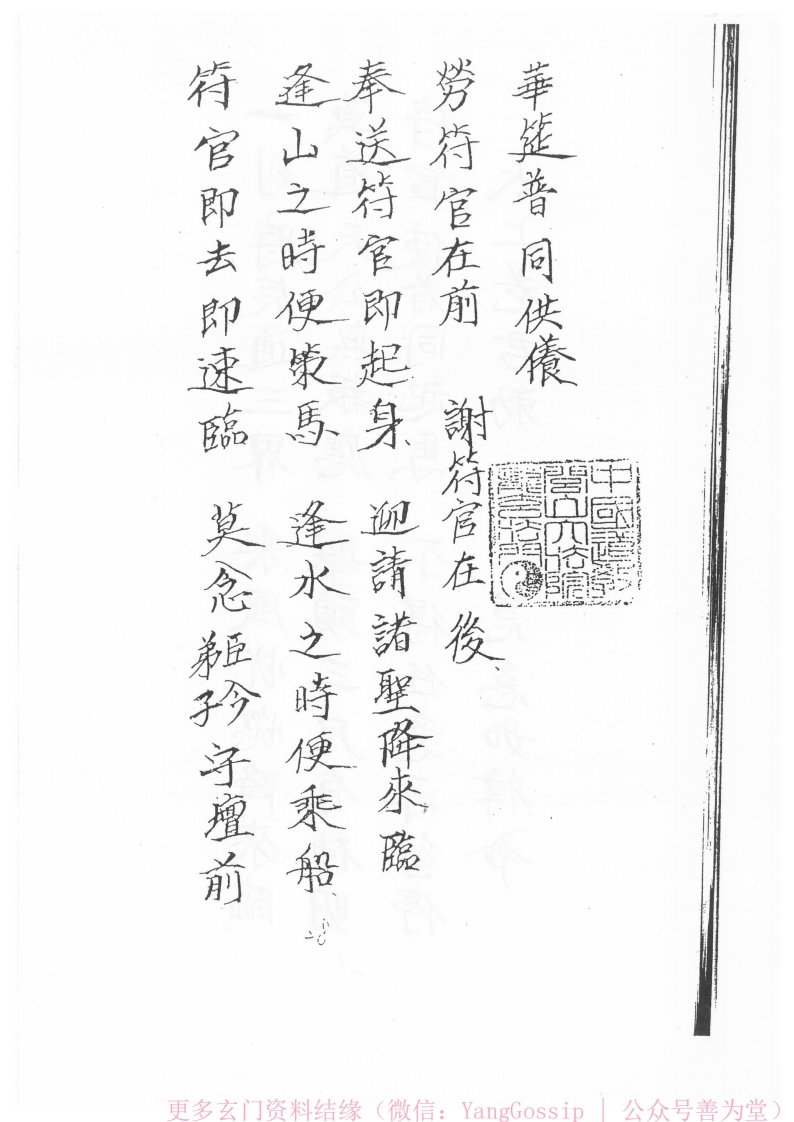 華筵普同供養
勞符官在前　謝符官在後
奉送符官即起身　迎請諸聖降來臨
逢山之時便策馬　逢水之時便乘船
符官即去即速臨　莫念弟子臣今守壇前
中國道教
閭山大法院
更多玄门资料结缘（微信：YangGossip | 公众号善为堂）